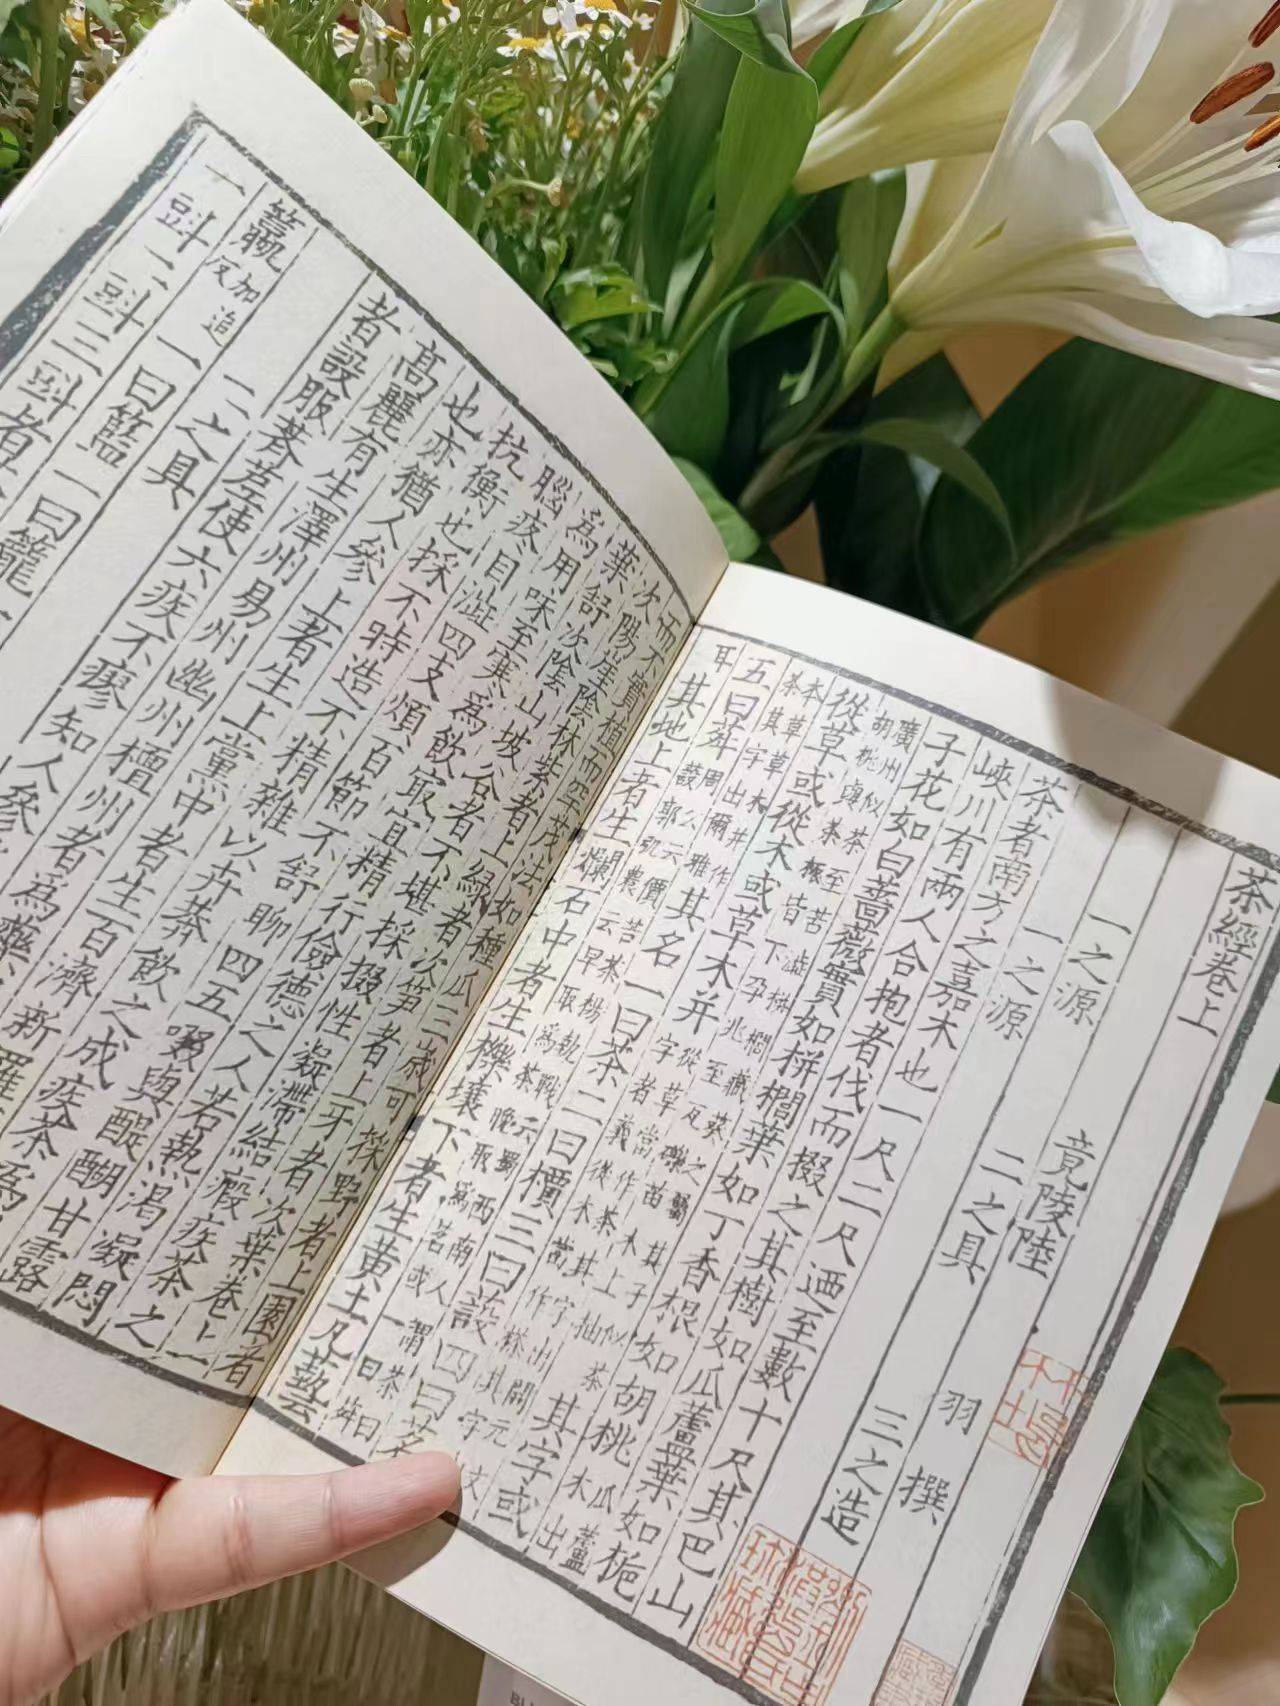 茶經卷上
竟陵陸 羽 撰
一之源 二之具 三之造
一之源
茶者南方之嘉木也一尺二尺迺至數十尺其巴山
峽川有兩人合抱者伐而掇之其樹如瓜蘆葉如梔
子花如白薔薇實如栟櫚葉如丁香根如胡桃 瓜蘆木出
廣州似茶至苦澁栟櫚蒲葵之屬其子似茶
胡桃與茶根皆下孕兆至瓦礫苗木上抽 其字或
從草或從木或草木并 從草當作茶其字出開元文
字者義從木當作搽其字出
本草草木并作
茶其字出爾雅 其名一曰茶二曰檟三曰蔎四曰茗
五曰荈 周公云檟苦茶楊執戟云蜀西南人謂茶曰
蔎郭弘農云早取為茶晚取為茗或一曰荈
耳 其地上者生爛石中者生櫟壤下者生黃土凡藝
而不實植而罕茂法如種瓜三歲可採野者上園者
次陽崖陰林紫者上綠者次筍者上牙者次葉卷上
葉舒次陰山坡谷者不堪採掇性凝滯結瘕疾茶之
為用味至寒為飲最宜精行儉德之人若熱渴凝悶
腦疼目澁四支煩百節不舒聊四五啜與醍醐甘露
抗衡也採不時造不精雜以卉莽飲之成疾茶為
也亦猶人參上者生上黨中者生百濟新羅
高麗有生澤州易州幽州檀州者為藥
者設服薺苨使六疾不瘳知人參
二之具
籯加追反一曰籃一曰籠
一㪷二㪷三㪷者